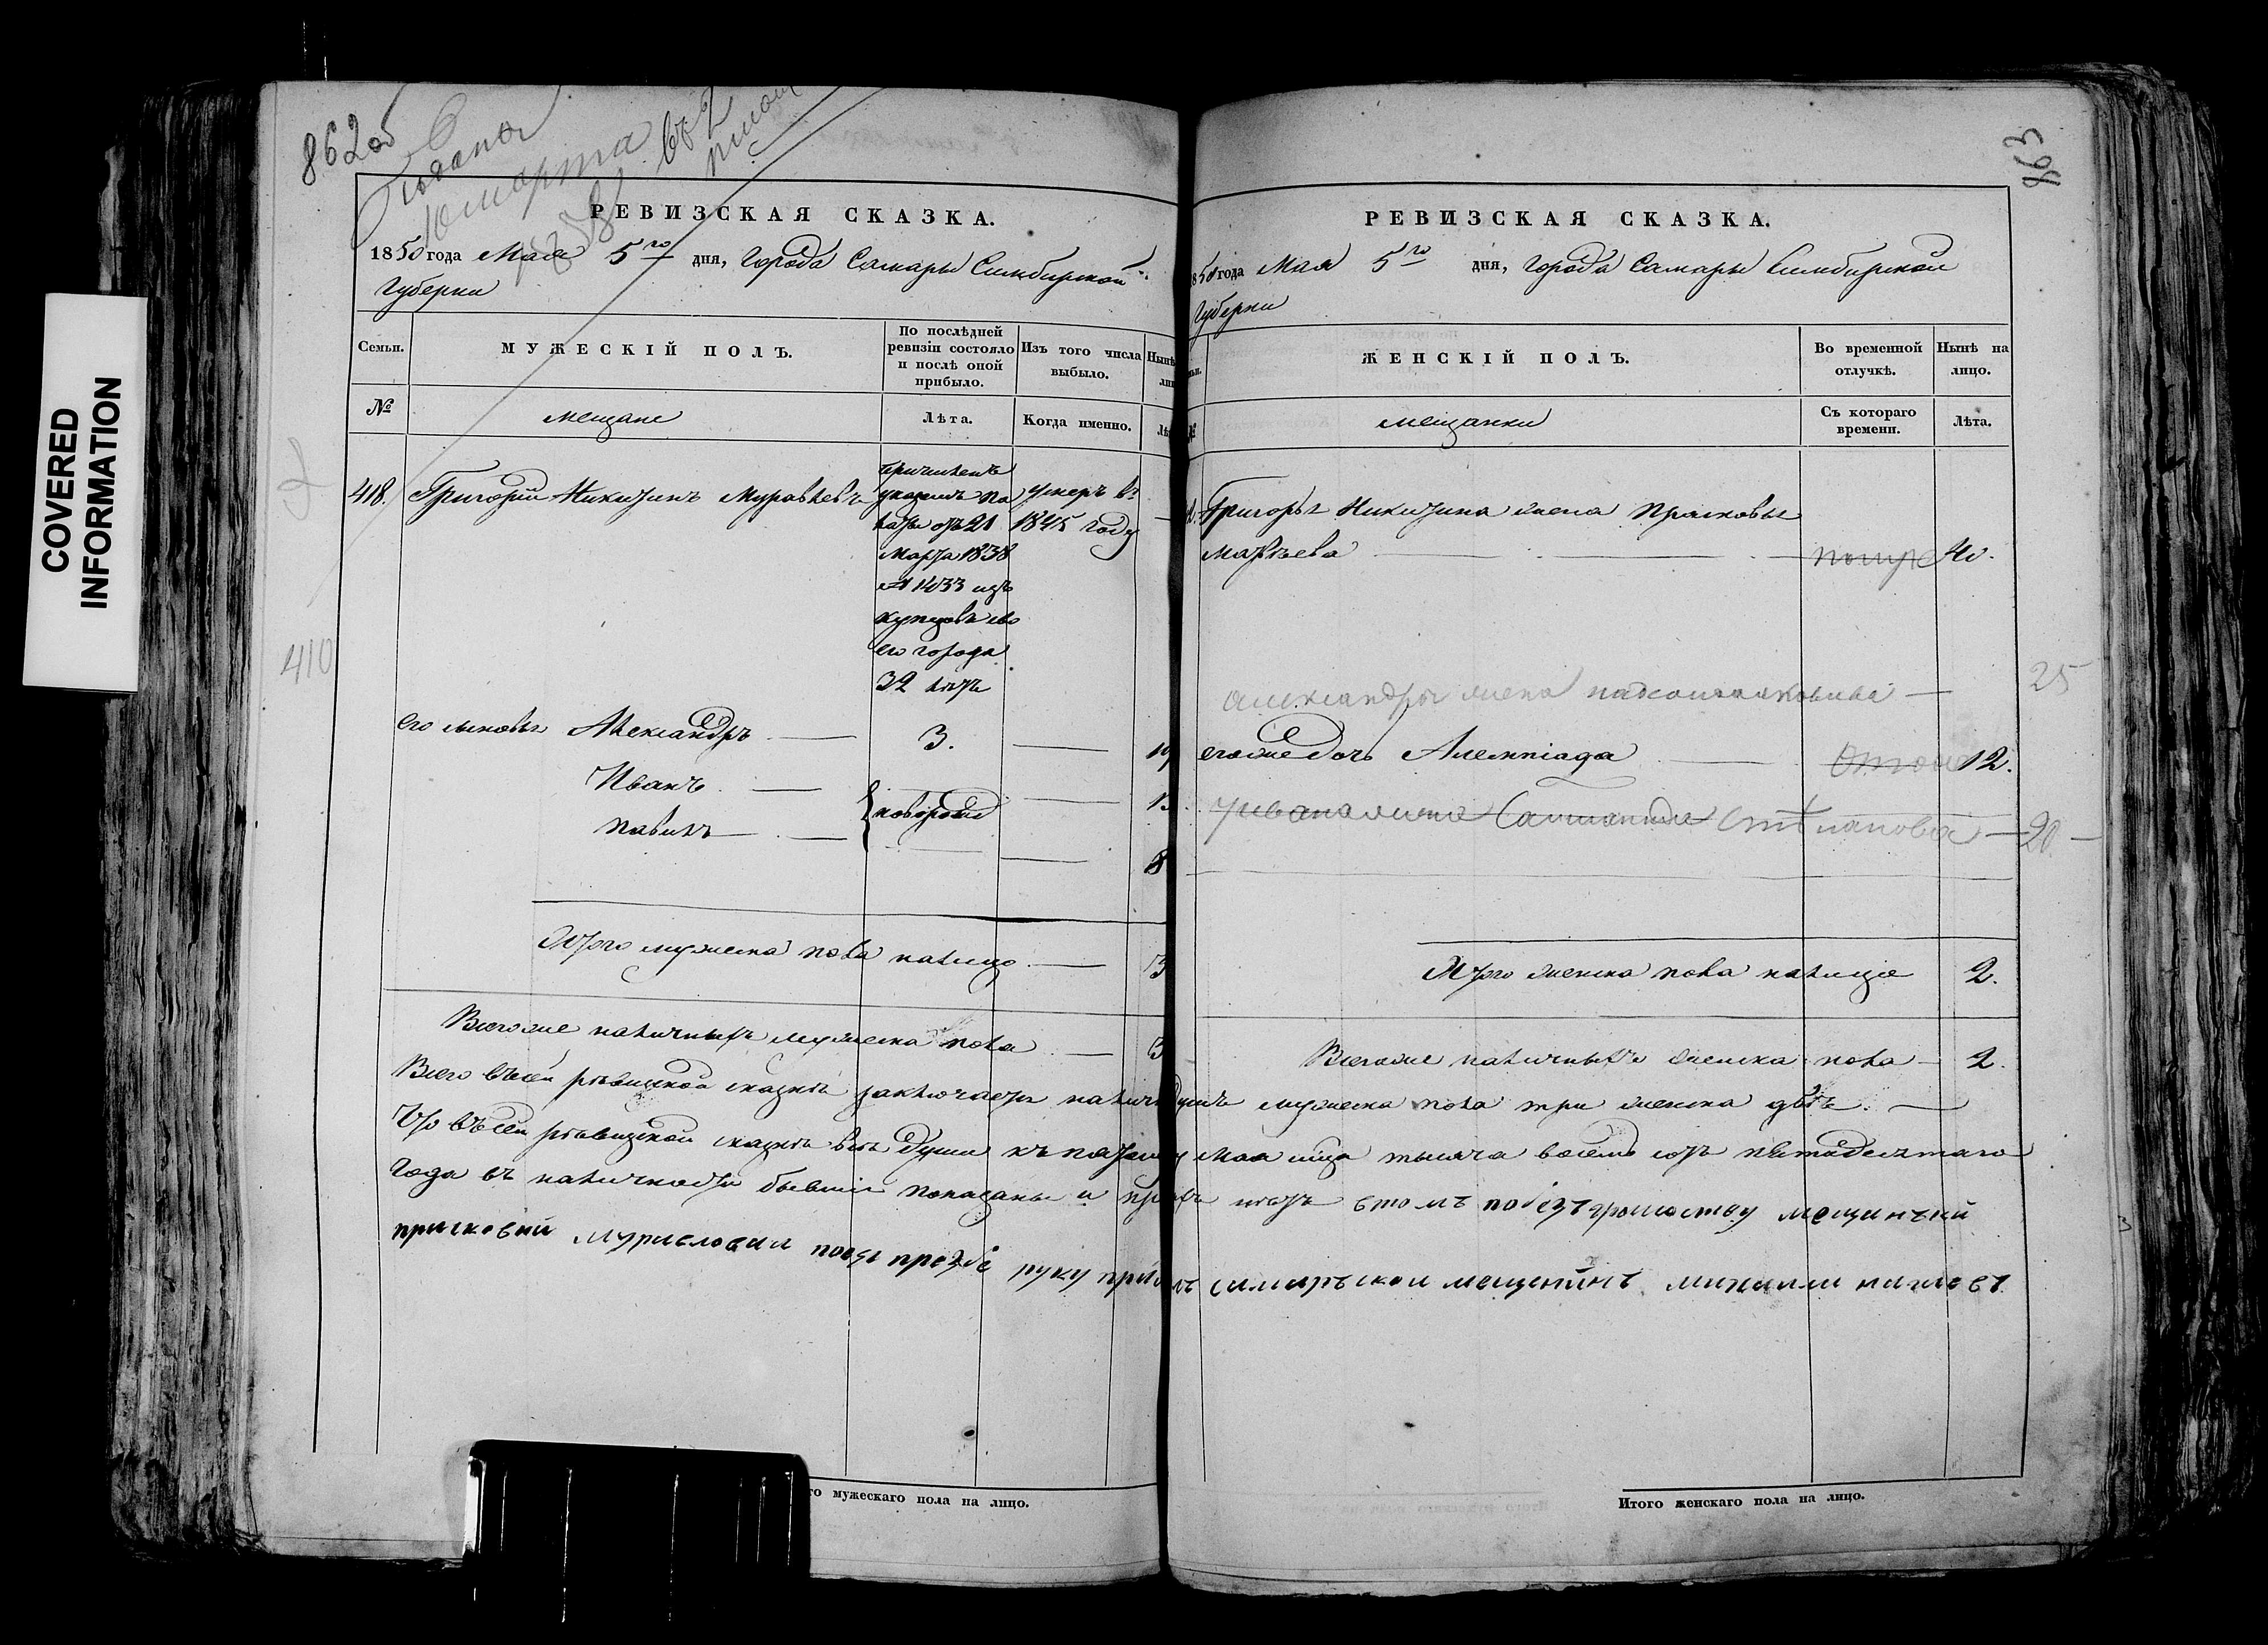 COVERED
INFORMATION
862 об
Подана
10 марта
1858
РЕВИЗСКАЯ СКАЗКА.
1850 года Мая 5го дня, Города Самары Симбирской
Губерни
Семьи.
МУЖЕСКІЙ ПОЛЪ.
По послѣдней
ревизіи состояло
и послѣ оной
прибыло.
Изъ того числа
выбыло.
Нынѣ
ли
№
мещане
Лѣта.
Когда именно.
Лѣ
418. Григорий Никитинъ Муравлевъ
причисленъ
указомъ па
латы отъ 21
Марта 1838
№ 1433 изъ
купцовъ сво
его города
32 лѣтъ
Умеръ въ
1845 году
410
его сыновья Александръ 3.
Иванъ
Павилъ
новорожд
8
Итого мужеска пола налицо 3
Всегоже наличныхъ мужеска пола 3
го мужескаго пола на лицо.
863
РЕВИЗСКАЯ СКАЗКА.
850 года Мая 5го дня, Города Самары Симбирской
Губерни
ьи.
ЖЕНСКІЙ ПОЛЪ.
Во временной
отлучкѣ.
Нынѣ на
лицо.
№
мещанки
Съ котораго
времени.
Лѣта.
Григорья Никитина жена Прасковья
Матвѣева 40.
Александры жена 25
егоже дочь Алемпіада 12.
Степанова 20
Итого женска пола налицо 2.
Всегоже наличныхъ женска пола 2.
Всего въ сей рѣвизской сказкѣ заключается налич душъ мужеска пола три женска двѣ.
Что въ сей рѣвизской сказкѣ всѣ души къ пятому Мая мца тысяча восемь сотъ пятадесятаго
Года въ наличности бывшие показаны и пр нѣтъ втомъ побезъграмотству мещанъкй
прасковйи муравловай поея прозбе руку прило лъ самаръскои мещенйнъ михаила
Итого женскаго пола на лицо.